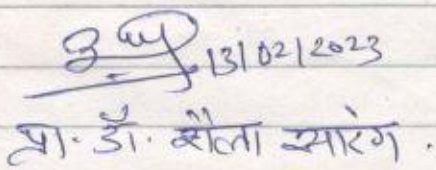 13/02/2023
प्रा. डॉ. शैला सारंग.